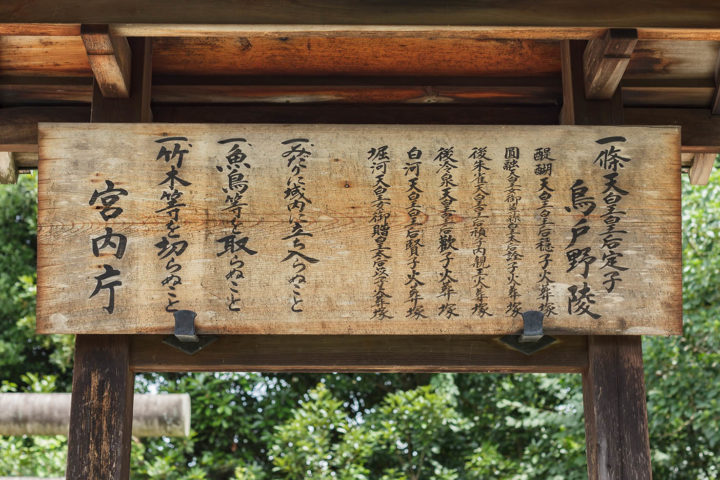 一條天皇皇后定子
鳥戸野陵
醍醐天皇皇后穏子火葬塚
圓融天皇女御尊称皇太后詮子火葬塚
後朱雀天皇皇后禎子内親王火葬塚
後冷泉天皇皇后歡子火葬塚
白河天皇皇后賢子火葬塚
堀河天皇女御贈皇太后苡子火葬塚
一 みだりに域内に立ち入らぬこと
一 魚鳥等を取らぬこと
一 竹木等を切らぬこと
宮内庁